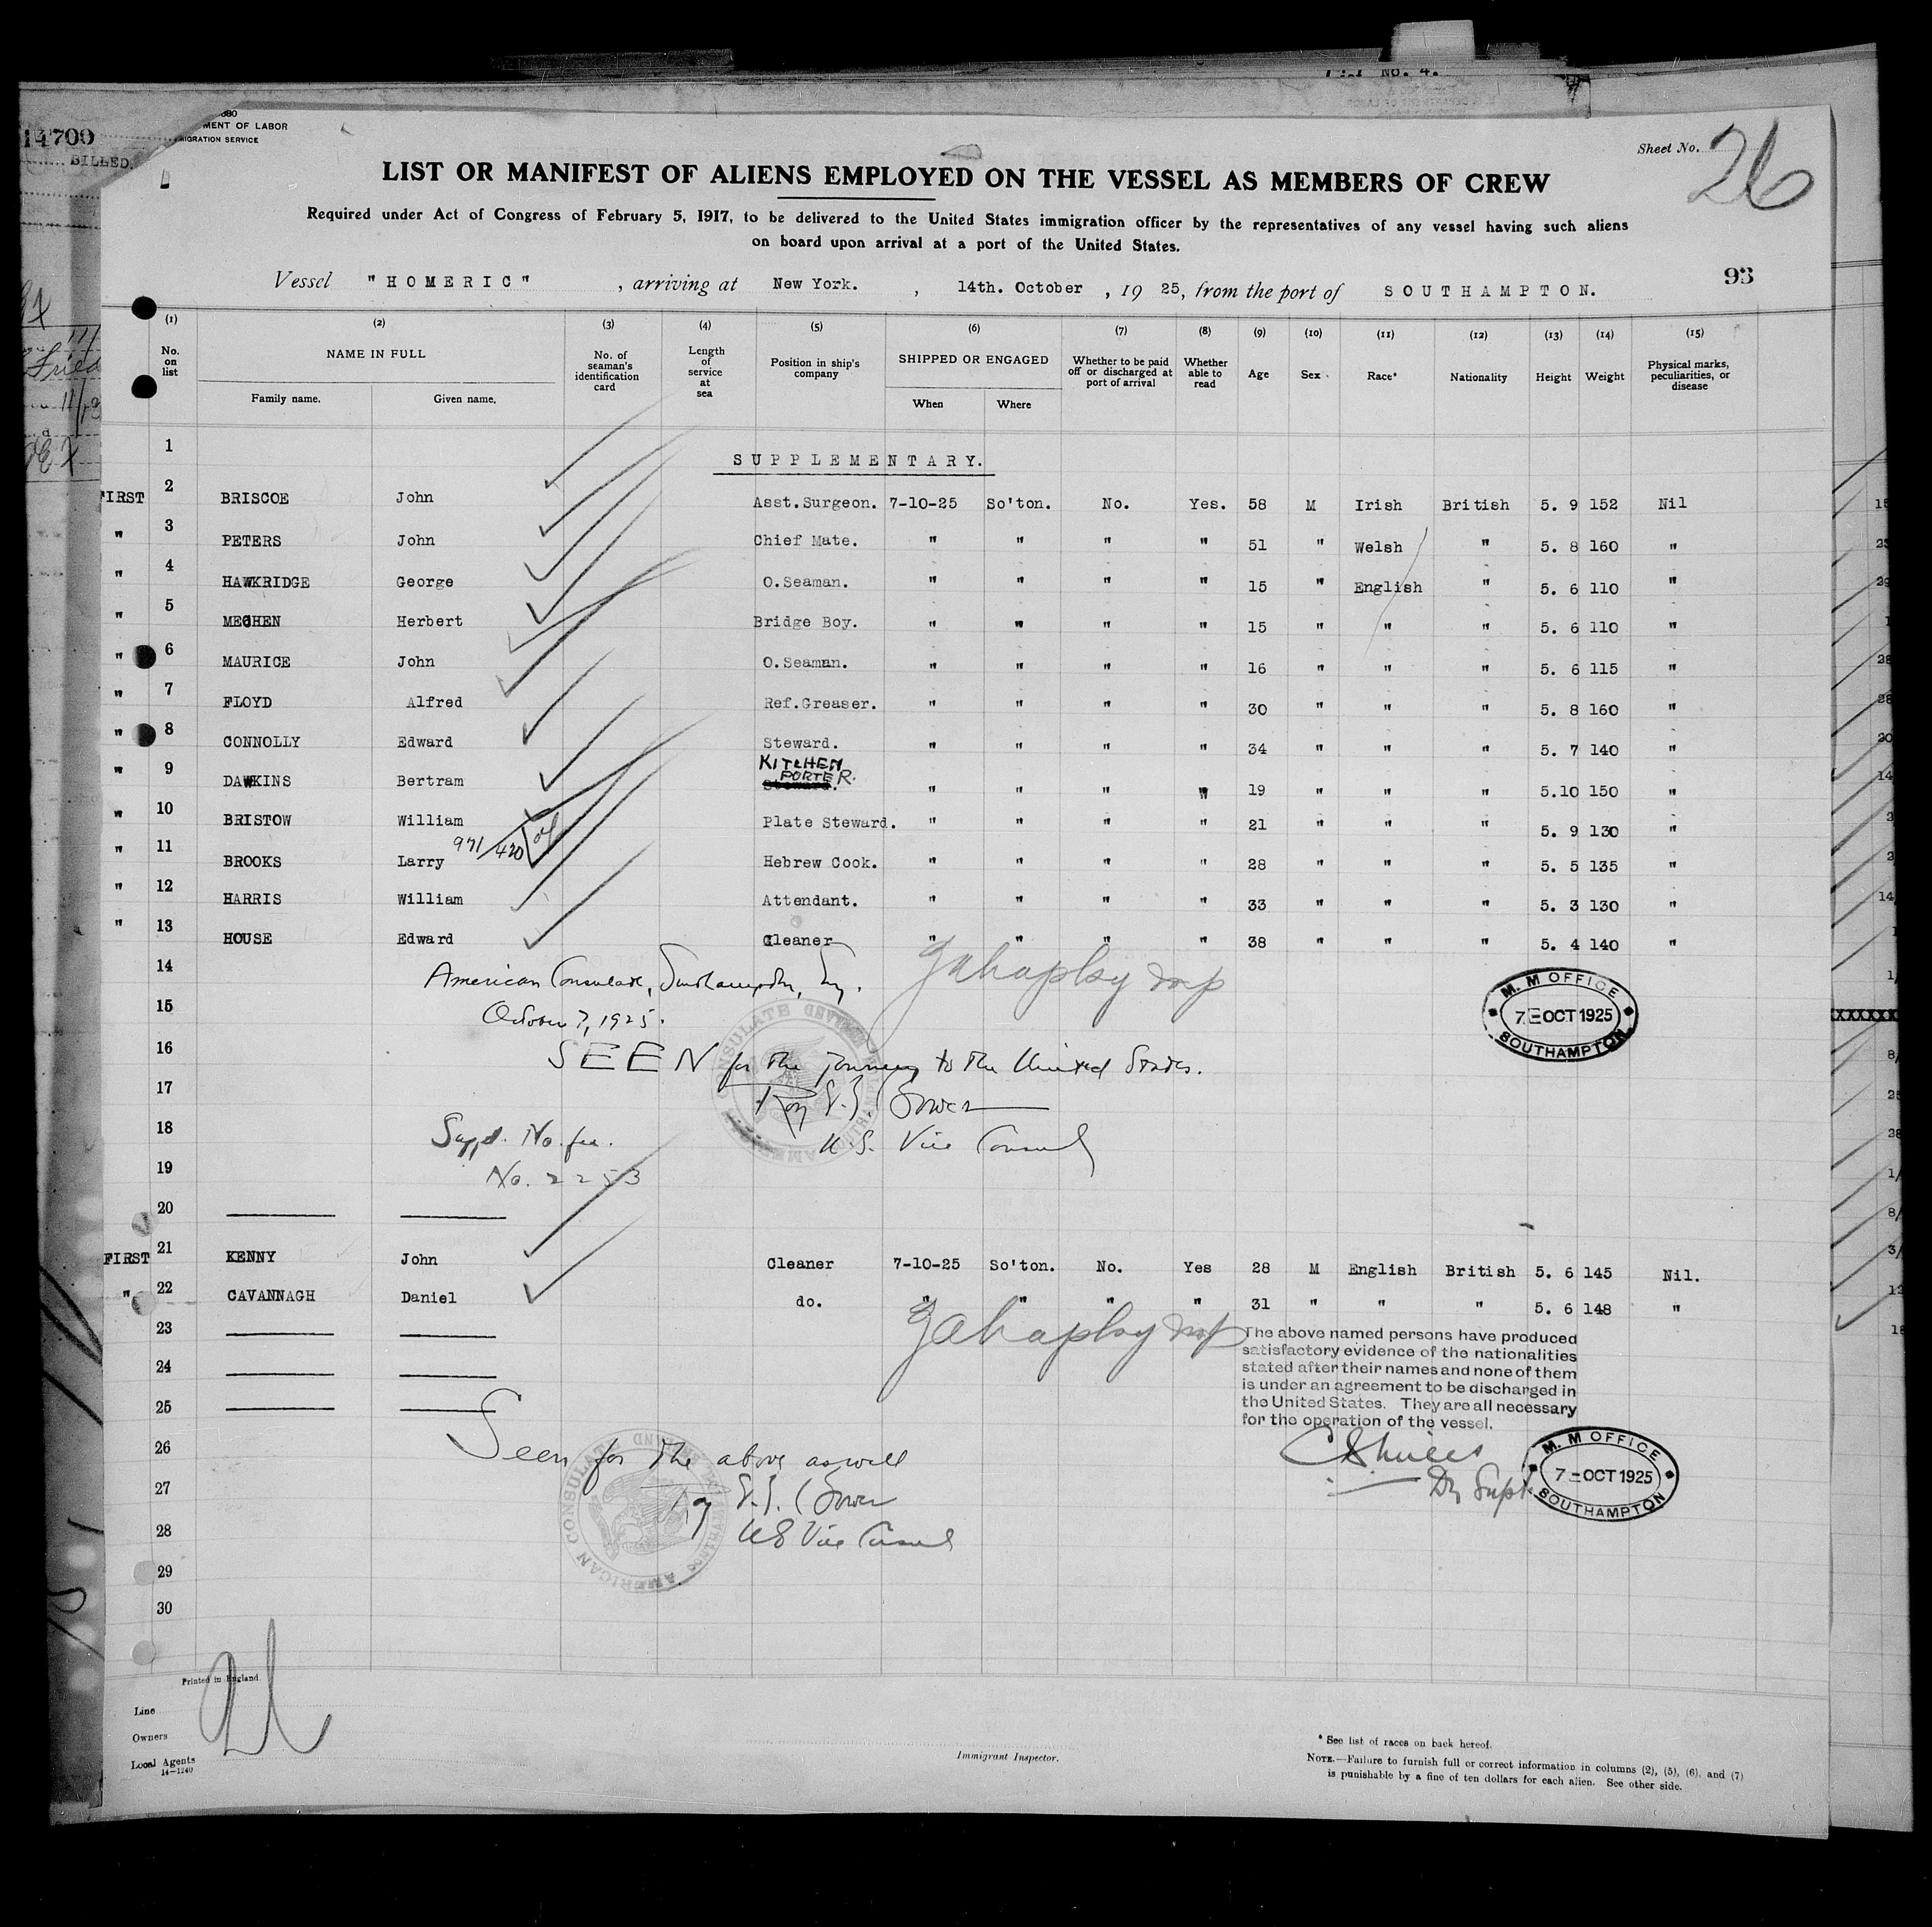 List No. 4.
14700
BILLED.
MENT OF LABOR
MIGRATION SERVICE
Sheet No. 26
LIST OR MANIFEST OF ALIENS EMPLOYED ON THE VESSEL AS MEMBERS OF CREW
Required under Act of Congress of February 5, 1917, to be delivered to the United States immigration officer by the representatives of any vessel having such aliens
on board upon arrival at a port of the United States.
93
Vessel "HOMERIC" , arriving at New York. , 14th. October , 19 25, from the port of SOUTHAMPTON.
(1) (2) (3) (4) (5) (6) (7) (8) (9) (10) (11) (12) (13) (14) (15)
No. on list NAME IN FULL No. of seaman's identification card Length of service at sea Position in ship's company SHIPPED OR ENGAGED Whether to be paid off or discharged at port of arrival Whether able to read Age Sex Race* Nationality Height Weight Physical marks, peculiarities, or disease
Family name. Given name. When Where
1 SUPPLEMENTARY.
FIRST 2 BRISCOE John Asst.Surgeon. 7-10-25 So'ton. No. Yes. 58 M Irish British 5. 9 152 Nil
" 3 PETERS John Chief Mate. " " " " 51 " Welsh " 5. 8 160 "
" 4 HAWKRIDGE George O.Seaman. " " " " 15 " English " 5. 6 110 "
" 5 Herbert Bridge Boy. " " " " 15 " " " 5. 6 110 "
" 6 MAURICE John O.Seaman. " " " " 16 " " " 5. 6 115 "
" 7 FLOYD Alfred Ref.Greaser. " " " " 30 " " " 5. 8 160 "
" 8 CONNOLLY Edward Steward. " " " " 34 " " " 5. 7 140 "
" 9 DAWKINS Bertram KITCHEN PORTER. Steward. " " " " 19 " " " 5.10 150 "
" 10 BRISTOW William Plate Steward. " " " " 21 " " " 5. 9 130 "
971/420
" 11 BROOKS Larry Hebrew Cook. " " " " 28 " " " 5. 5 135 "
" 12 HARRIS William Attendant. " " " " 33 " " " 5. 3 130 "
" 13 HOUSE Edward Cleaner " " " " 38 " " " 5. 4 140 "
14 American Consulate, Southampton, Eng.
15 October 7, 1925.
M. M OFFICE
7 OCT 1925
SOUTHAMPTON
16 SEEN for the journey to the United States.
17 Roy E. B. Bower
18 Suppl. No fee. U.S. Vice Consul
19 No. 2253
20
FIRST 21 KENNY John Cleaner 7-10-25 So'ton. No. Yes 28 M English British 5. 6 145 Nil.
" 22 CAVANNAGH Daniel do. " " " " 31 " " " 5. 6 148 "
23
24
25
The above named persons have produced
satisfactory evidence of the nationalities
stated after their names and none of them
is under an agreement to be discharged in
the United States. They are all necessary
for the operation of the vessel.
26 Seen for the above as well
27 Roy E. B. Bower
Dy Supt.
M. M OFFICE
7-OCT 1925
SOUTHAMPTON
28 US Vice Consul
AMERICAN CONSULATE
29
30
Printed in England.
Line
Owners
Local Agents
14-1240
Immigrant Inspector.
* See list of races on back hereof.
NOTE.—Failure to furnish full or correct information in columns (2), (5), (6), and (7)
is punishable by a fine of ten dollars for each alien. See other side.